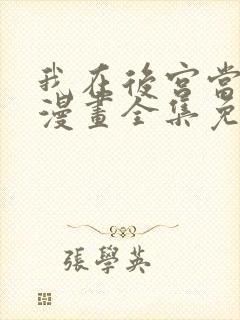 我在後宮當
漫畫全集免
張學英